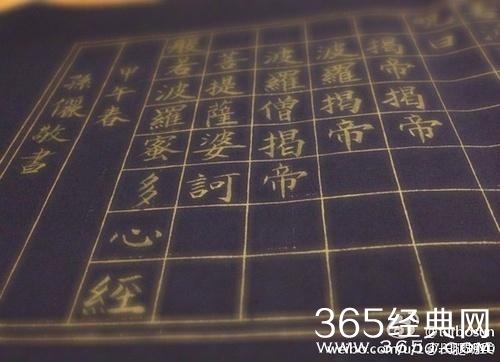 曰
揭帝揭帝
波羅揭帝
波羅僧揭帝
菩提薩婆訶
般若波羅蜜多心經
甲午春
孫儷敬書
365经典网